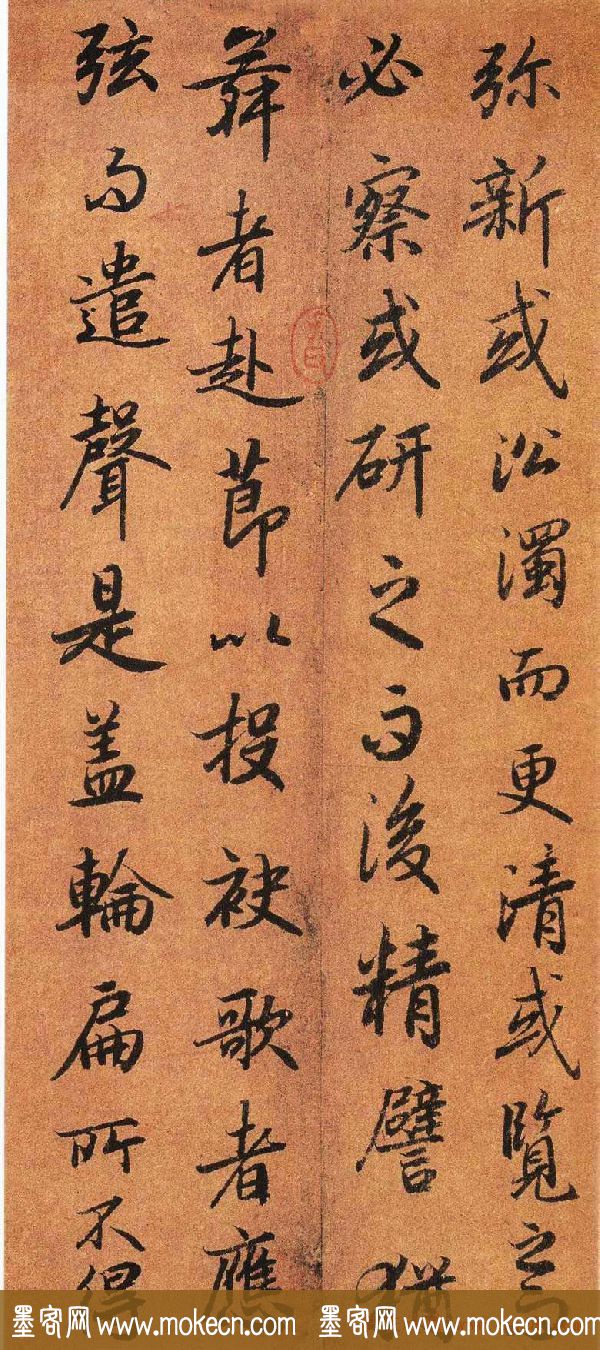 弥新或沿濁而更清或覽之而
必察或研之而後精譬猶
舞者赴節以投袂歌者應
弦而遣聲是盖輪扁所不得
墨客网 www.mokecn.com 墨客网 www.mokecn.com